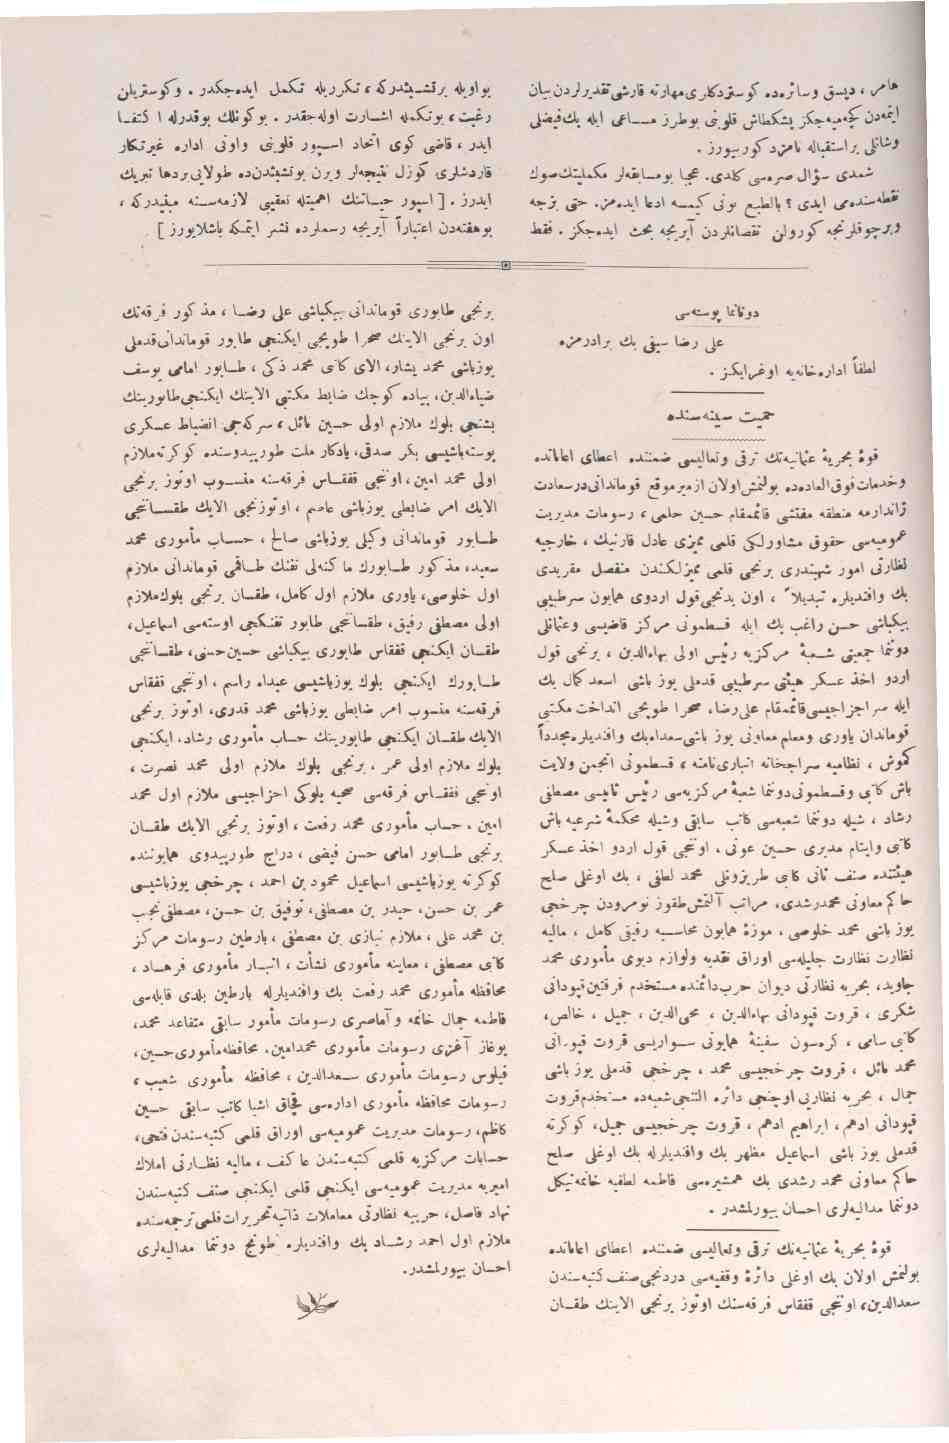 هامر ، دیسق وسائره‌ده کوستردکلری مهارته قارشی تقدیرلردن بیان
ایتمه‌دن کچه‌میه‌جکز بشکطاش قلوبنی بوطرز مساعی ایله پك فیضلی
وشانلی براستقباله نامزد کوریورز .
شمدی سؤال صره‌سی کلدی. عجبا بومسابقه‌لر مکملیتك صوك
نقطه‌سنده‌می ایدی ؟ بالطبع بونی کیمسه ادعا ایده‌مز. حتی بزجه
وبرچوقلرنجه کورولن نقصانلردن آیریجه بحث ایده‌جکز . فقط
بواویله برتشبثدرکه ، تکررریله تکمل ایده‌جکدر . وکوستریلن
رغبت ، بوتکمله اشارت اوله‌جقدر . بوکونلك بوقدرله اکتفا
ایدر ، قاضی کوی اتحاد اسپور قلوبنی واونی اداره غیرتکار
قارداشلری کوزل نتیجه‌لر ویرن بوتشبثدن‌ده طولایی بردها تبریك
ایدرز . [ اسپور حیاتنك اهمیتله تعقیبی لازمه‌سنه مبنیدرکه ،
بوهفته‌دن اعتباراً آیریجه رسملرده نشر ایتمکه باشلایورز ] .
دوننما پوسته‌سی
علی رضا سیفی بك برادرمزه
لطفاً اداره‌خانه‌یه اوغرایکز .
حمیت سینه‌سنده
قوهٔ بحریهٔ عثمانیه‌نك ترقی وتعالیسی ضمننده اعطای اعاناتده
وخدمات فوق‌العاده‌ده بولنمش اولان ازمیر موقع قوماندانی درسعادت
ژاندارمه منطقه مفتشی قائممقام حسین حلمی ، رسومات مدیریت
عمومیه‌سی حقوق مشاورلکی قلمی ممیزی عادل قارنیك ، خارجیه
نظارتی امور شهبندری برنجی قلمی ممیزلکندن منفصل مقریدی
بك وافندیلره تبدیلاً ، اون یدنجی قول اردوی همایون سرطبیبی
بیکباشی حسن راغب بك ایله قسطمونی مرکز قاضیسی وعثمانلی
دوننما جمعیتی شعبهٔ مرکزیه رئیس اولی بهاءالدین ، برنجی قول
اردو اخذ عسکر هیئتی سرطبیبی قدملی یوز باشی اسعد کمال بك
ایله سر اجزاجیسی قائممقام علی رضا، صحرا طوپجی انداخت مکتبی
قوماندان یاوری ومعلم معاونی یوز باشی سعداء بك وافندیلره مجدداً
کموش ، نظامیه سراجخانه انباری نامنه ، قسطمونی انجمن ولایت
باش کاتبی وقسطمونی دوننما شعبهٔ مرکزیه‌سی رئیس ثانیسی مصطفی
رشاد ، شیله دوننما شعبه‌سی کاتب سابقی وشیله محکمهٔ شرعیه باش
کاتبی وایتام مدیری حسین عونی ، اونجی قول اردو اخذ عسکر
هیئتنده صنف ثانی کاتبی طربزونلی محمد لطفی ، بك اوغلی صلح
حاکم معاونی محمد رشدی، مراتب آلتمش طقوز نومرودن چرخجی
یوز باشی محمد خلوصی ، موزهٔ همایون محاسبه رفیقی کامل ، مالیه
نظارت نظارت جلیله‌سی اوراق نقدیه ولوازم دپوی مأموری محمد
جاوید، بحریه نظارتی دیوان حرب دائمنده مستخدم فرقتین قپودانی
شکری ، قروت قپودانی بهاءالدین ، محیی‌الدین ، جمیل ، خالص،
کاتبی سامی ، کره‌سون سفینهٔ همایونی سواریسی قروت قپودانی
محمد مائل ، قروت چرخجیسی محمد ، چرخجی قدملی یوز باشی
جمال ، بحریه نظارتی اوچنجی دائره التنجی شعبه‌ده مستخدم قروت
قپودانی ادهم، ابراهیم ادهم ، قروت چرخجیسی جمیل، کوکرته
قدملی یوز باشی اسماعیل مظهر بك وافندیلرله بك اوغلی صلح
حاکم معاونی محمد رشدی بك همشیره‌سی فاطمه لطفیه خانمه نیکل
دوننما مدالیه‌لری احسان بیورلمشدر .
قوهٔ بحریهٔ عثمانیه‌نك ترقی وتعالیسی ضمننده اعطای اعاناتده
بولنمش اولان بك اوغلی دائرهٔ وقفیه‌سی دردنجی صنف کتبه‌سندن
سعدالدین، اونجی قفقاس فرقه‌سنك اوتوز برنجی الاینك طقسان
برنجی طابوری قوماندانی بیکباشی علی رضا ، مذکور فرقه‌نك
اون برنجی الاینك صحرا طوپجی ایکنجی طابور قوماندانی قدملی
یوزباشی محمد یشار، الای کاتبی محمد ذکی ، طابور امامی یوسف
ضیاءالدین، پیاده کوچك ضابط مکتبی الاینك ایکنجی طابورینك
بشنجی بلوك ملازم اولی حسین مائل ، سرکه‌جی انضباط عسکری
پوسته‌باشیسی بکر صدقی، یادکار ملت طورپیدوسنده کوکرته ملازم
اولی محمد امین، اونجی قفقاس فرقه‌سنه منسوب اوتوز برنجی
الایك امر ضابطی یوزباشی عاصم ، اوتوزنجی الایك طقسانجی
طابور قوماندانی وکیلی یوزباشی صالح ، حساب مأموری محمد
سعید، مذکور طابورك ماکنه‌لی تفنك طاقمی قوماندانی ملازم
اول خلوصی، یاوری ملازم اول کامل، طقسان برنجی بلوك ملازم
اولی مصطفی رفیق، طقسانجی طابور تفنکجی اوسته‌سی اسماعیل،
طقسان ایکنجی قفقاس طابوری بیکباشی حسین حسنی، طقسانجی
طابورك ایکنجی بلوك یوزباشیسی عبداء راسم ، اونجی قفقاس
فرقه‌سنه منسوب امر ضابطی یوزباشی محمد قدری، اوتوز برنجی
الایك طقسان ایکنجی طابورینك حساب مأموری رشاد، ایکنجی
بلوك ملازم اولی عمر ، برنجی بلوك ملازم اولی محمد نصرت ،
اونجی قفقاس فرقه‌سی صحیه بلوکی اجزاجیسی ملازم اول محمد
امین ، حساب مأموری محمد رفعت ، اوتوز برنجی الایك طقسان
برنجی طابور امامی حسن فیضی ، دراج طورپیدوی همایوننده
کوکرته یوزباشیسی اسماعیل محمود بن احمد ، چرخجی یوزباشیسی
عمر بن حسن، حیدر بن مصطفی، توفیق بن حسن، مصطفی نجیب
بن محمد علی ، ملازم نیازی بن مصطفی ، بارطین رسومات مرکز
کاتبی مصطفی ، معاینه مأموری نشأت ، انبار مأموری فرهاد ،
محافظه مأموری محمد رفعت بك وافندیلرله بارطین بلدی قابله‌سی
فاطمه جمال خانمه وآماصری رسومات مأمور سابقی متقاعد محمد،
بوغاز آغزی رسومات مأموری محمدامین، محافظه مأموری حسین،
فیلوس رسومات مأموری سعدالدین ، محافظه مأموری شعیب ،
رسومات محافظه مأموری اداره‌سی قچاق اشیا کاتب سابقی حسین
کاظم، رسومات مدیریت عمومیه‌سی اوراق قلمی کتبه‌سندن فتحی،
حسابات مرکزیه قلمی کتبه‌سندن عاکف ، مالیه نظارتی املاك
امیریه مدیریت عمومیه‌سی ایکنجی قلمی ایکنجی صنف کتبه‌سندن
نهاد فاصل، حربیه نظارتی معاملات ذاتیه تحریرات قلمی ترجمه‌سنده
ملازم اول احمد رشاد بك وافندیلره طونج دوننما مدالیه‌لری
احسان بیورلمشدر.